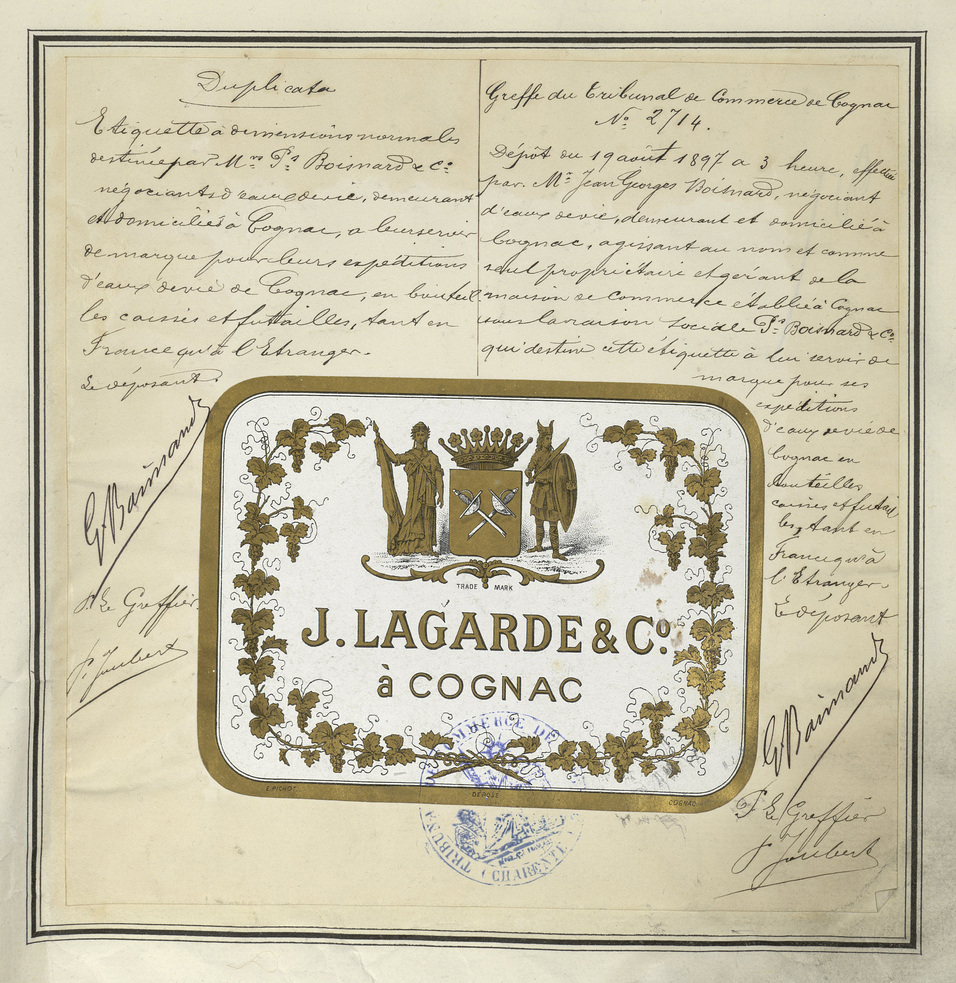 Duplicata
Etiquette à dimensions normales
destinée par Mrs Ps Boisnard & Co
négociants d'eaux de vie, demeurant
et domiciliés à Cognac, a leur servir
de marque pour leurs expéditions
d'eaux de vie de Cognac, en bouteil
les caisses et futailles, tant en
France qu'à l'Etranger.
Le déposant
P. Le Greffier
J. Joubert
Greffe du Tribunal de Commerce de Cognac
No 2714.
Dépôt du 19 août 1897 a 3 heure, effectué
par Mr Jean Georges Boisnard, négociant
d'eaux de vie, demeurant et domicilié à
Cognac, agissant au nom et comme
seul propriétaire et gérant de la
maison de commerce établie à Cognac
sous la raison sociale Ps Boisnard & Co
qui destine cette étiquette à lui servir de
marque pour ses
expéditions
d'eaux de vie de
Cognac en
bouteilles
caisses et futail
les, tant en
France qu'à
l'Etranger.
Le déposant
P. Le Greffier
J. Joubert
TRADE MARK
J. LAGARDE & Co.
à COGNAC
E. PICHOT
DÉPOSÉ
COGNAC
TRIBUNAL DE COMMERCE DE
(CHARENTE)